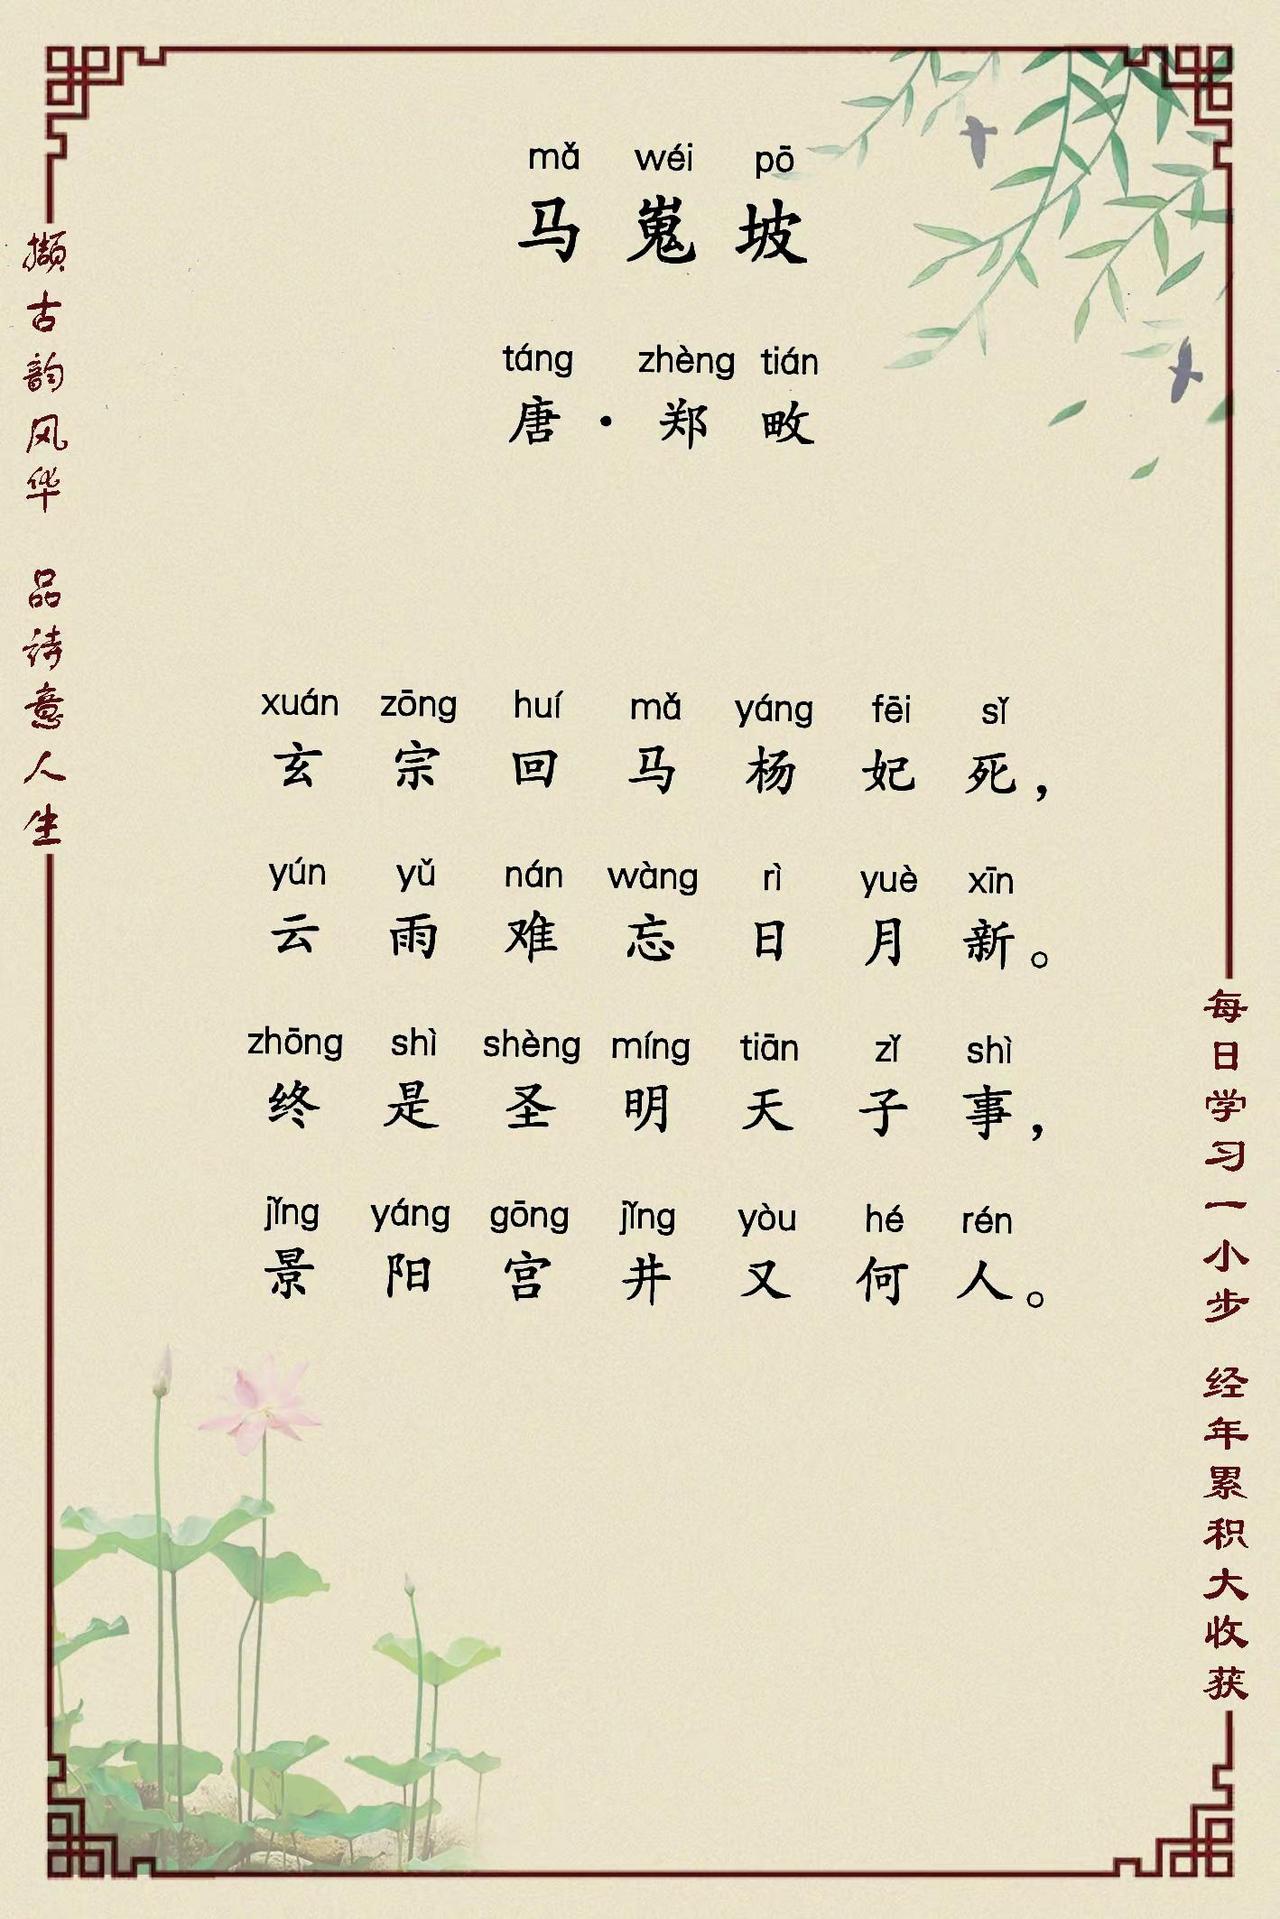 mǎ wéi pō
马嵬坡
táng zhèng tián
唐·郑畋
xuán zōng huí mǎ yáng fēi sǐ
玄宗回马杨妃死，
yún yǔ nán wàng rì yuè xīn
云雨难忘日月新。
zhōng shì shèng míng tiān zǐ shì
终是圣明天子事，
jǐng yáng gōng jǐng yòu hé rén
景阳宫井又何人。
撷古韵风华 品诗意人生
每日学习一小步 经年累积大收获